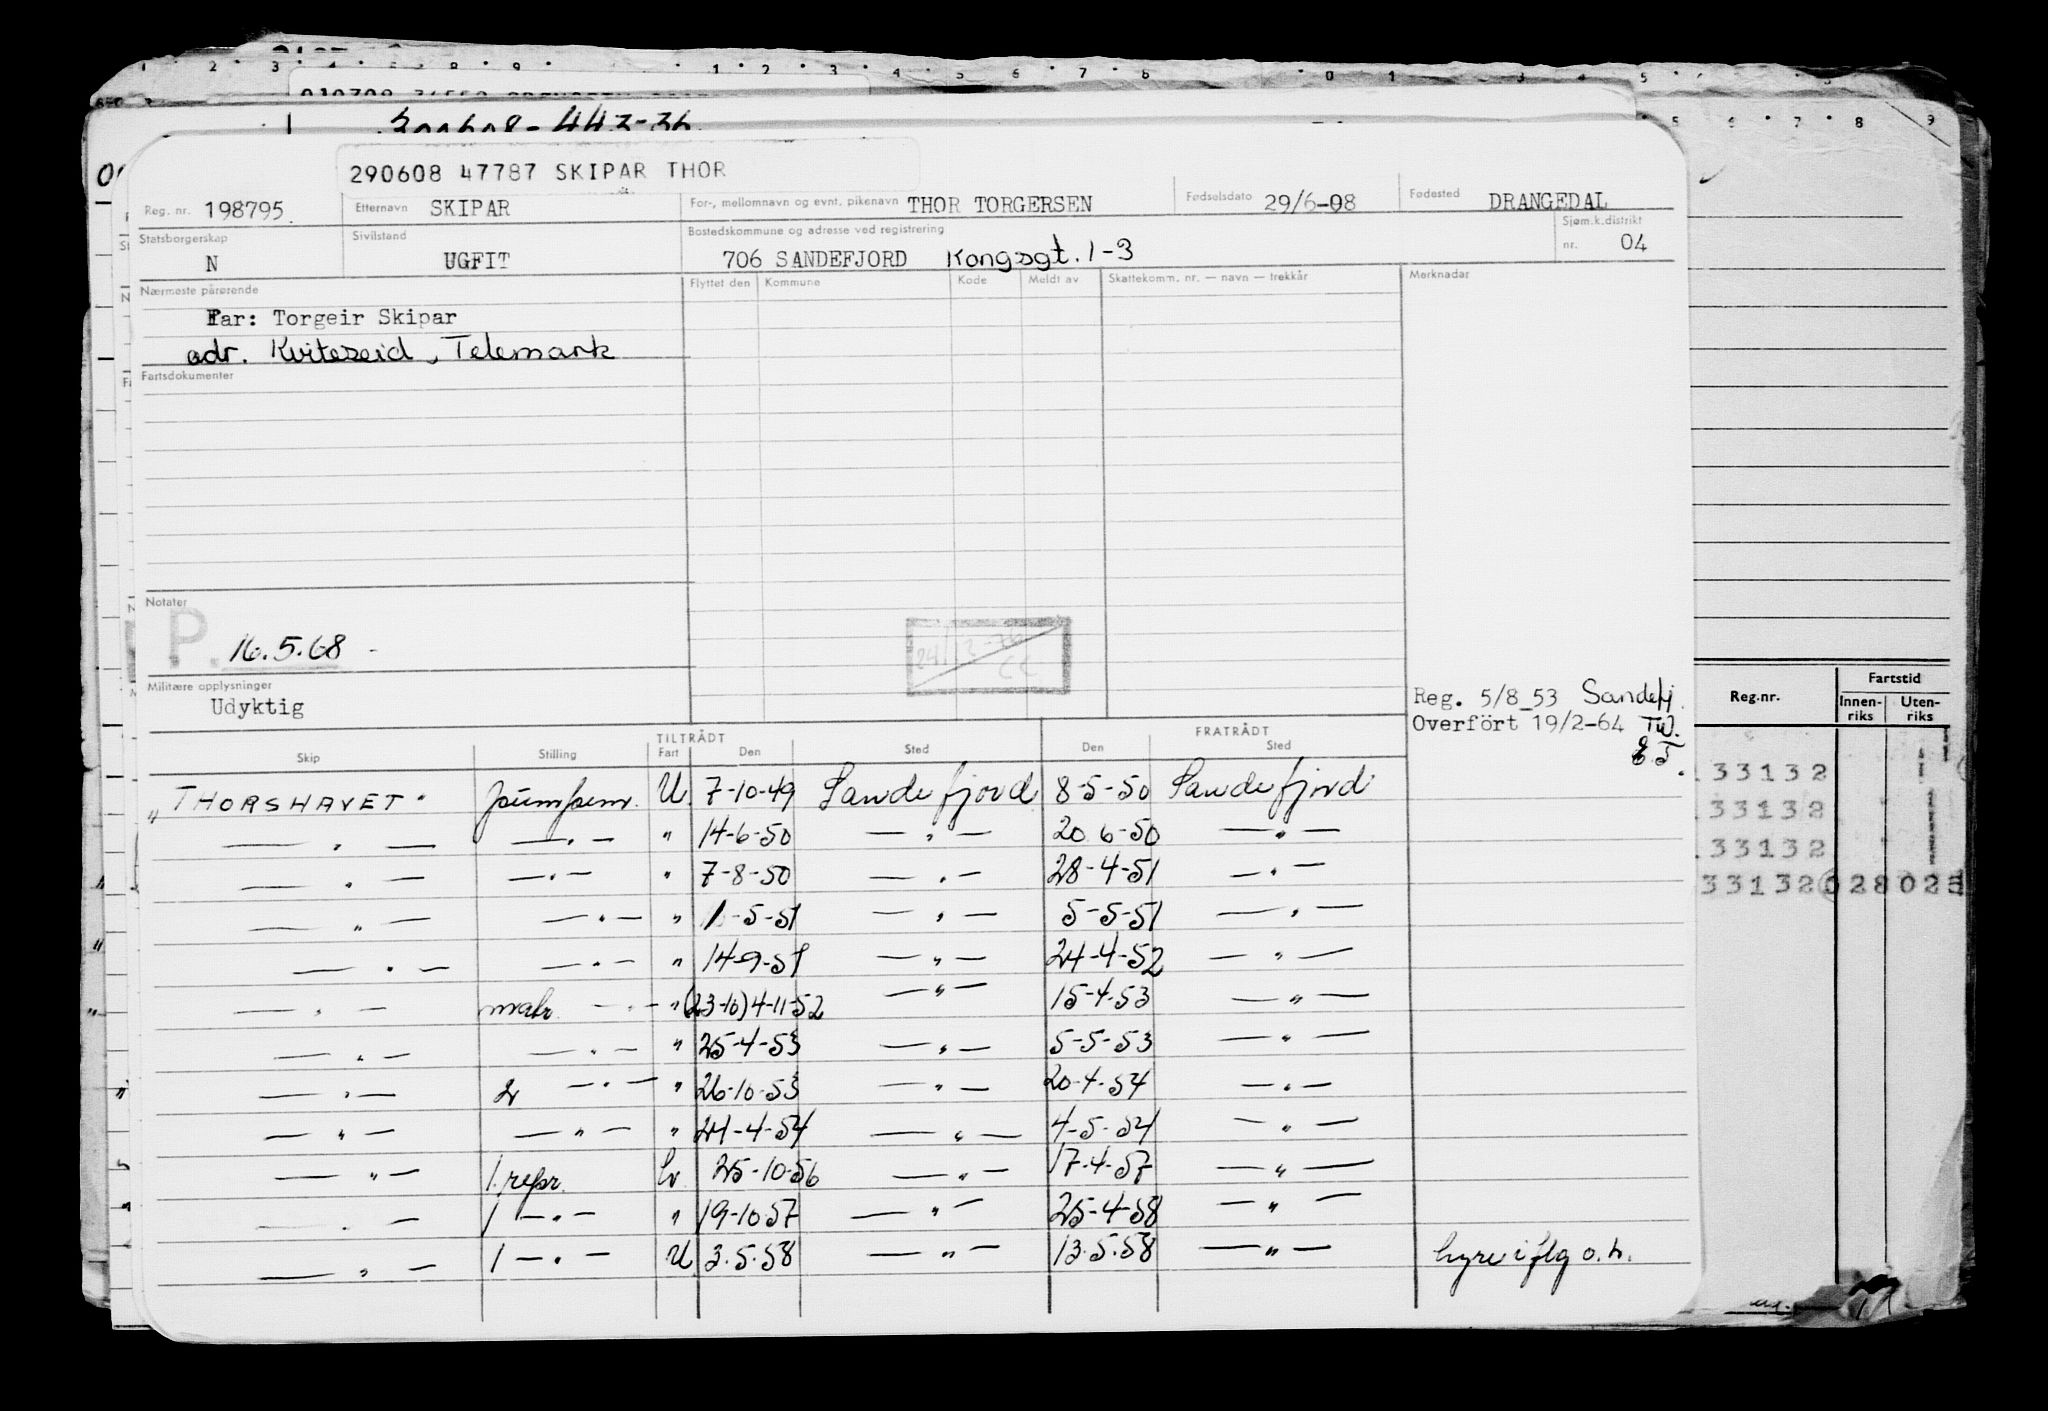 200608-443-36
290608 47787 SKIPAR THOR
Reg. nr. 198795. Etternavn SKIPAR For-, mellomnavn og evnt. pikenavn THOR TORGERSEN Fødselsdato 29/6-08 Fødested DRANGEDAL
Statsborgerskap N Sivilstand UGFIT Bostedskommune og adresse ved registrering 706 SANDEFJORD Kongsgt. 1-3 Sjøm.k.distrikt nr. 04
Nærmeste pårørende Flyttet den Kommune Kode Meldt av Skattekomm. nr. — navn — trekkår Merknader
Far: Torgeir Skipar
adr. Kviteseid, Telemark
Fartsdokumenter
Notater
P. 16.5.68
Militære opplysninger
Udyktig
Reg. 5/8_53 Sandefj.
Overfört 19/2-64 TW.
Fartstid
Reg.nr. Innen-riks Uten-riks
TILTRÅDT FRATRÅDT
Skip Stilling Fart Den Sted Den Sted
"THORSHAVET" U. 7-10-49 Sandefjord 8-5-50 Sandefjord
— " — — " — " 14-6-50 — " — 20 6-50 — " —
— " — — " — " 7-8-50 — " — 28-4-51 — " —
— " — — " — " 1-5-51 — " — 5-5-51 — " —
— " — — " — " 14-9-51 — " — 24-4-52 — " —
— " — — " — " (23-10) 4-11-52 — " — 15-4-53 — " —
— " — — " — " 25-4-53 — " — 5-5-53 — " —
— " — 2 — " — " 26-10-53 — " — 20-4-54 — " —
— " — — " — " 24-4-54 — " — 4-5-54 — " —
— " — 1. repr. 25-10-56 — " — 17-4-57 — " —
— " — 1 — " — " 19-10-57 — " — 25-4-58 — " —
— " — 1 — " — U 3.5.58 — " — 13.5.58 — " — hyre iflg o.h.
33132
33132
33132
33132 028025